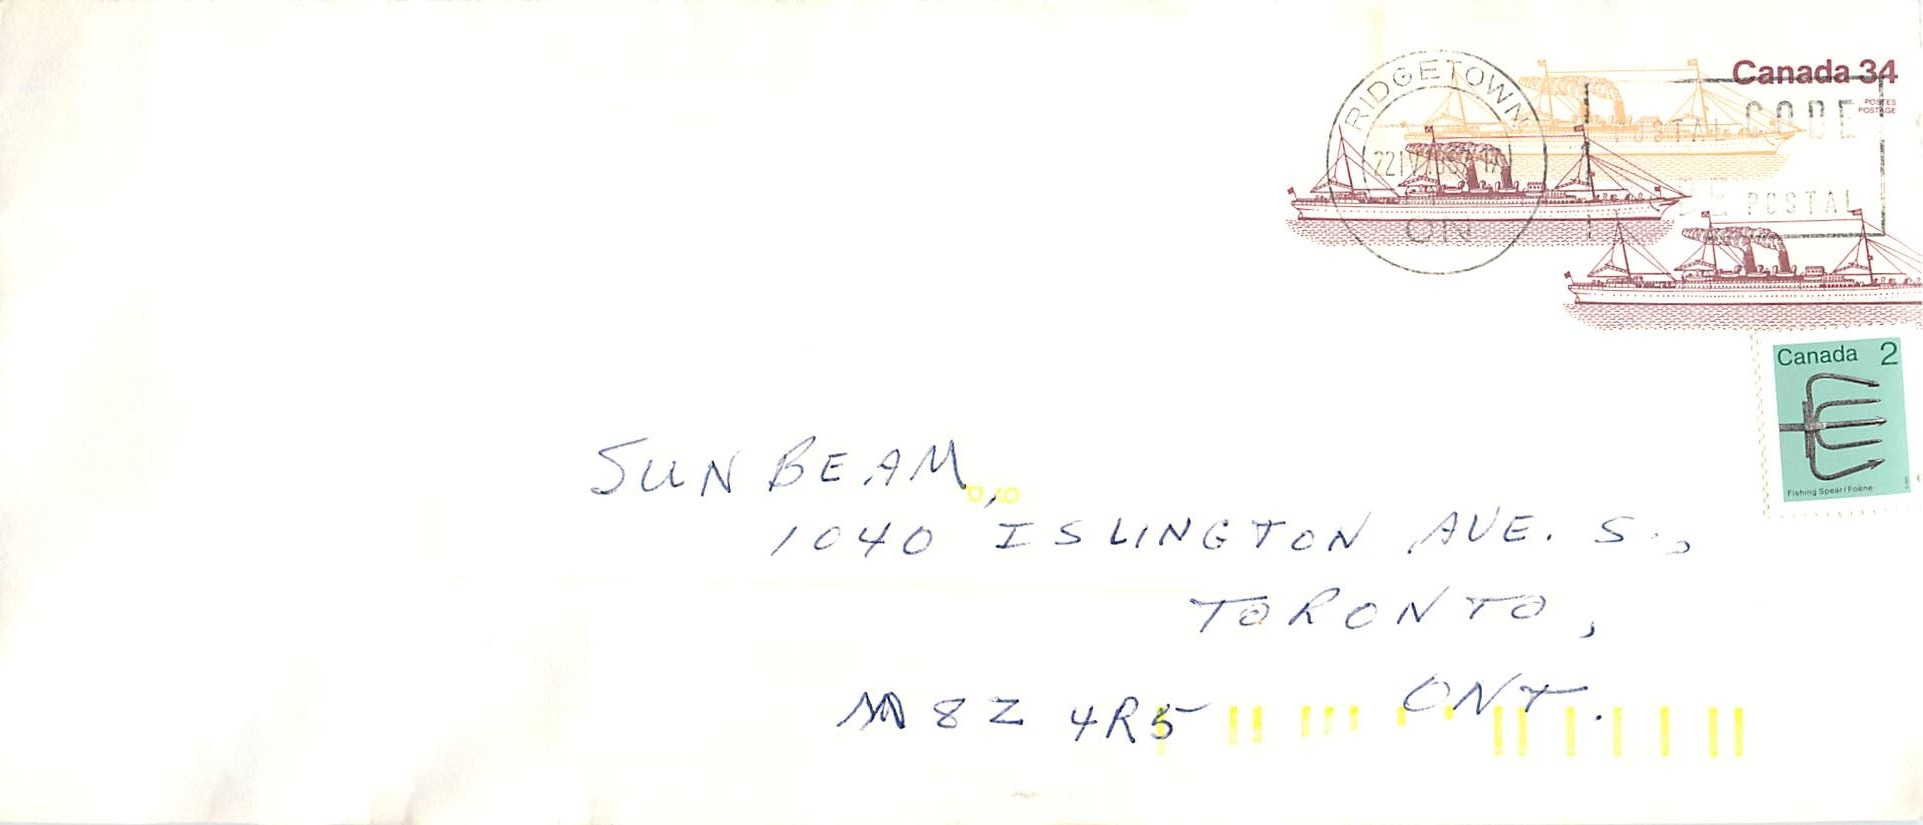 Canada 34
POSTES
POSTAGE
RIDGETOWN
ON
POSTAL CODE
POSTAL
Canada 2
Fishing Spear/Foëne
SUN BEAM,
1040 ISLINGTON AVE. S.,
TORONTO,
ONT.
M8Z 4R5